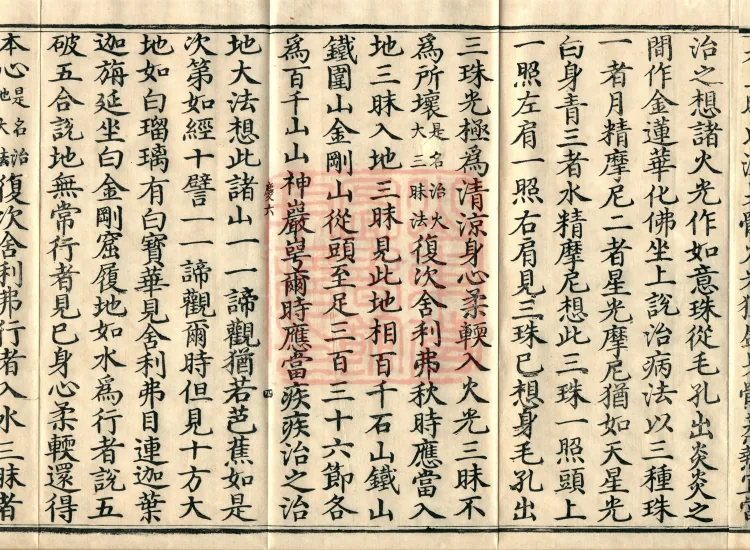 治之想諸火光作如意珠從毛孔出炎炎之
間作金蓮華化佛坐上說治病法以三種珠
一者月精摩尼二者星光摩尼猶如天星光
白身青三者水精摩尼想此三珠一照頭上
一照左肩一照右肩見三珠已想身毛孔出
三珠光極爲清涼身心柔輭入火光三昧不
爲所壞是名治火大三昧法復次舍利弗秋時應當入
地三昧入地三昧見此地相百千石山鐵山
鐵圍山金剛山從頭至足三百三十六節各
爲百千山山神巖崿爾時應當疾疾治之治
四
地大法想此諸山一一諦觀猶若芭蕉如是
次第如經十譬一一諦觀爾時但見十方大
地如白瑠璃有白寶華見舍利弗目連迦葉
迦旃延坐白金剛窟履地如水爲行者說五
破五合說地無常行者見已身心柔輭還得
本心是名治地大法復次舍利弗行者入水三昧者